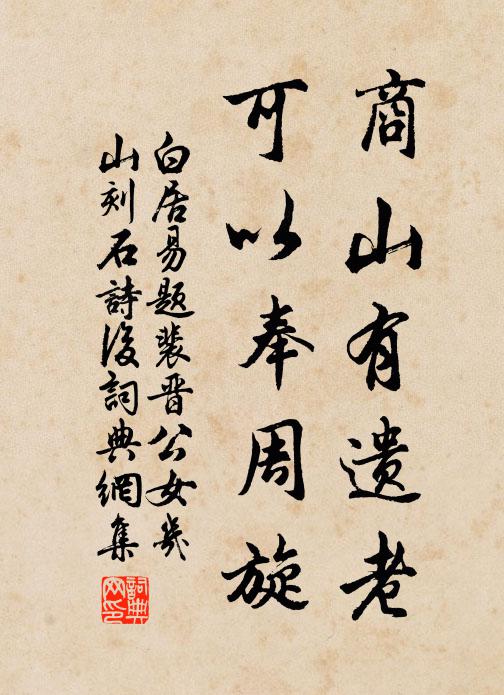 商山有遗老
可以奉周旋
白居易题裴晋公女几
山刻石詩後詞典網集
詞典網印